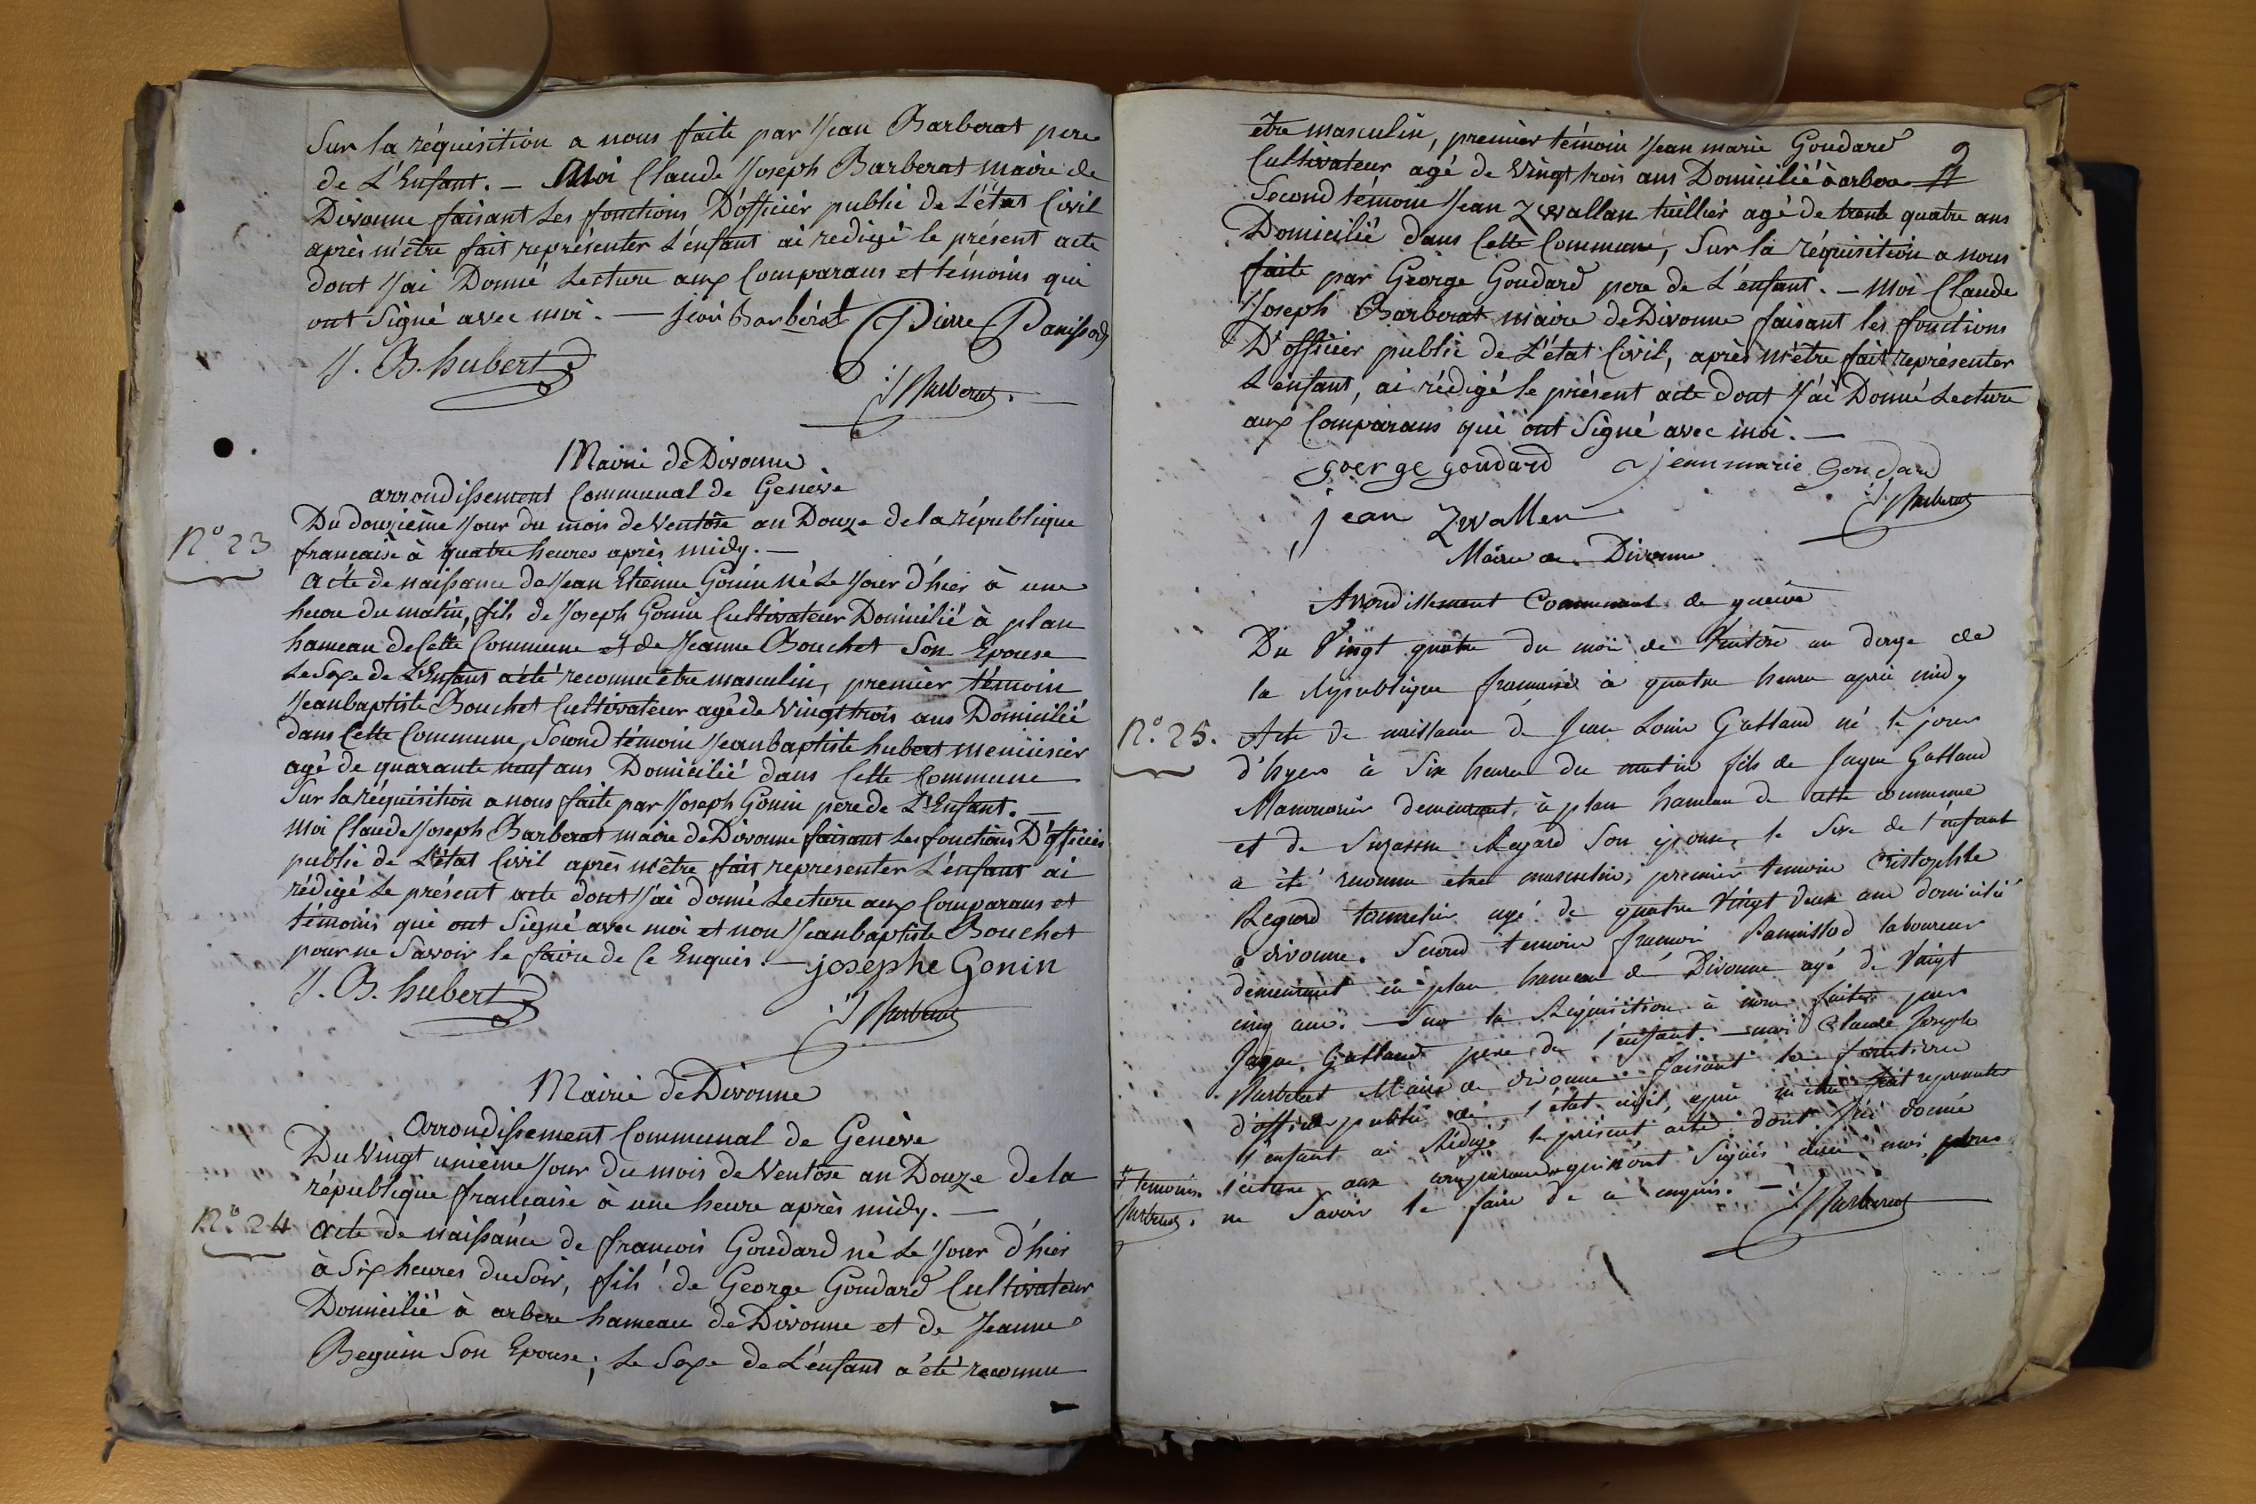 Sur la réquisition a nous faite par Jean Barberat pere
de L'Enfant. — Moi Claude Joseph Barberat maire de
Divonne faisant Les fonctions D'officier public de L'état Civil
après m'être fait représenter L'enfant ai redigé le présent acte
dont J'ai Donné Lecture aux Comparans et témoins qui
ont Signé avec moi. — jean Barbérat Pierre Panissod
J. B. hubert
Barberat
Mairie de Divonne
arrondissement Communal de Genève
N.º 23
Du douzième Jour du mois de Ventôse an Douze de la république
francaise à quatre heures après midy. —
acte de naissance de Jean Etienne Gonin né Le Jour d'hier à une
heure du matin, fils de Joseph Gonin Cultivateur Domicilié à plan
hameau de Cette Commune et de Jeanne Bouchet Son Epouse
Le Sexe de L'Enfant a été reconnu être masculin, premier témoin
Jean baptiste Bouchet Cultivateur agé de Vingt trois ans Domicilié
dans Cette Commune, Second témoin Jean baptiste hubert menuisier
agé de quarante neuf ans Domicilié dans Cette Commune
Sur la réquisition a nous faite par Joseph Gonin pere de L'Enfant. —
Moi Claude Joseph Barberat maire de Divonne faisant Les fonctions D'officier
public de L'état Civil après m'être fait representer L'enfant ai
rédigé Le présent acte dont J'ai donné Lecture aux Comparans et
témoins qui ont Signé avec moi et non Jean baptiste Bouchet
pour ne Savoir le faire de Ce Enquis. — josephe Gonin
J. B. hubert
Barberat
Mairie de Divonne
Arrondissement Communal de Genève
Du Vingt unième Jour du mois de Ventôse an Douze de la
république francaise à une heure après midy. —
N.º 24
acte de naissance de francois Goudard né Le Jour d'hier
à Six heures du Soir, fils de George Goudard Cultivateur
Domicilié à arbere hameau de Divonne et de Jeanne
Beguin Son Epouse; Le Sexe de L'enfant a été reconnu
9
être masculin, premier témoin Jean marie Goudard
Cultivateur agé de Vingt trois ans Domicilié à arbere
Second témoin Jean Zwallan tuillier agé de trente quatre ans
Domicilié dans Cette Commune, Sur la réquisition a nous
faite par George Goudard pere de L'enfant. — Moi Claude
Joseph Barberat maire de Divonne faisant les fonctions
D'officier public de L'état Civil, après m'être fait représenter
L'enfant, ai rédigé le présent acte dont J'ai Donné Lecture
aux Comparans qui ont Signé avec moi. —
goerge goudard jean marie Goudard
jean Zwallen
Barberat
Mairie de Divonne
Arondissement Communal de genève
Du Vingt quatre du moi de Ventose an douze de
la Republique francaise à quatre heure aprè midy
N.º 25.
Acte de naissance de Jean Louis Gattaud né le jour
d'hyer à Six heure du matin fils de Jaque Gattaud
demeurant à plan hameau de cette commune
et de Suzanne Regard Son épouse, le Sexe de l'enfant
a été reconnu etre masculin, premier temoin Cristophle
Regard tonnelier agé de quatre Vingt deux ans domicilié
a divonne. Second temoin francois Pannissod laboureur
demeurant en plan hameau de Divonne agé de Vingt
cinq ans. — Sur la Réquisition à nous faite par
Jaque Gattaud pere de l'enfant. — moi Claude Joseph
Barberat Maire de divonne faisant les fonctions
d'officier public de l'état civil, aprè m'etre fait representer
l'enfant ai Rédigé le présent acte dont J'ai donné
# temoins
Barberat.
lecture aux comparans # qui n'ont Signés avec moi, pour
ne Savoir le faire de ce enquis. —
Barberat